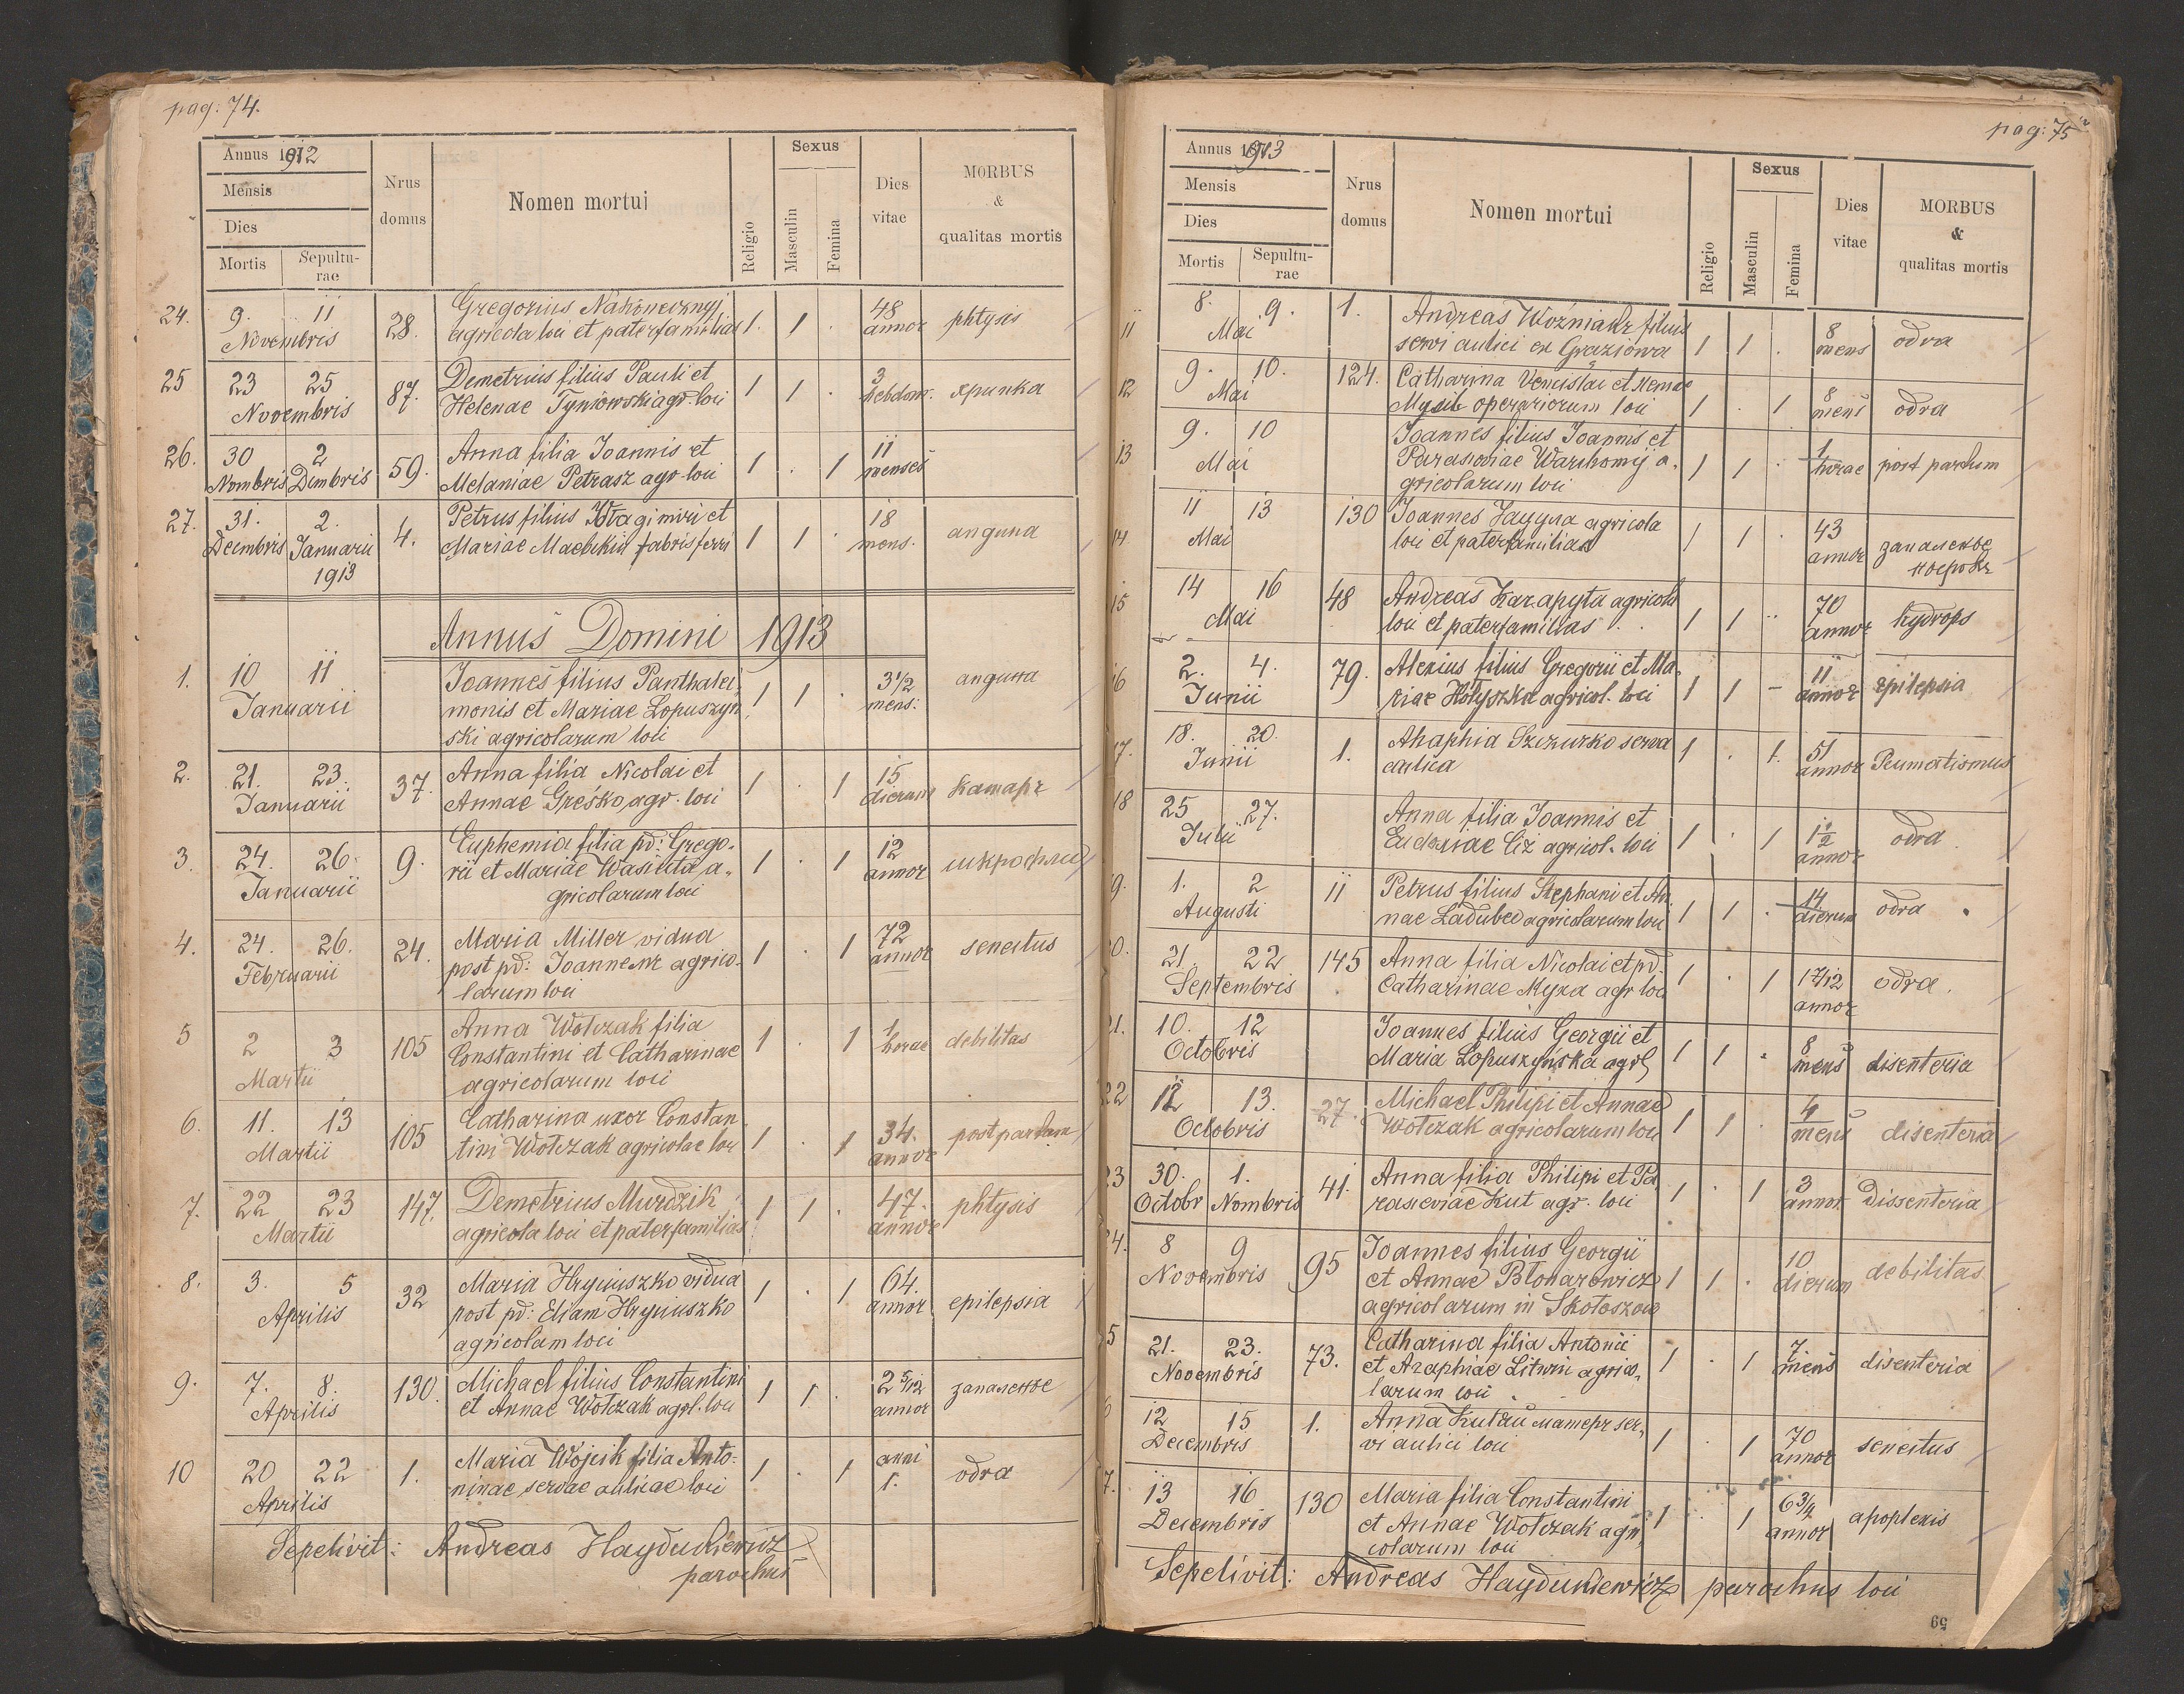 pag: 74.
Annus 1912
Mensis
Dies
Mortis
Sepultu-
rae
Nrus
domus
Nomen mortui
Religio
Sexus
Masculin
Femina
Dies
vitae
MORBUS
&
qualitas mortis
24. 9. 11 28. Gregorius Nahonecznyj 1. 1 . 48 phtysis
Novembris agricola loci et paterfamilias annor
25 23 25 87. Demetrius filius Pauli et 1 1 . 3
Novembris Helenae Tyniowski agr. loci hebdom. хрипка
26. 30 2 59. Anna filia Joannis et 1 . 1 11
Nombris Dmbris Melaniae Petrasz agr. loci menses
27. 31. 2. 4. Petrus filius et 1 1 . 18 angina
Decmbris Januarii Mariae fabris ferri mens.
1913
Annus Domini 1913
1. 10 11 Joannes filius Panthalei- 1 1 . 3 1/2 angina
Januarii monis et Mariae Lopuszyn mens.
ski agricolarum loci
2. 21. 23. 37. Anna filia Nicolai et 1 . 1 15 катаръ
Januarii Annae Greśko agr. loci dierum
3. 24. 26. 9. Euphemia filia pd: Grego- 1 . 1 12
Januarii rii et Mariae Wasiuta a- annor
gricolarum loci
4. 24. 26. 24. Maria Miller vidua 1 . 1 72 senectus
Februarii post pd: Joannem agrico- annor
larum loci
5 2 3 105 Anna Wołczak filia 1 . 1 1 debilitas
Martii Constantini et Catharinae horae
agricolarum loci
6. 11. 13 105 Catharina uxor Constan 1 . 1 34. post partum
Martii tini Wołczak agricolae loci annor
7. 22 23 147. Demetrius Murdzik 1 1 . 47. phtysis
Martii agricola loci et paterfamilias annor
8. 3. 5 32 Maria Hryciuszko vidua 1 . 1 64. epilepsia
Aprilis post pd: Eliam Hryciuszko annor
agricolam loci
9. 7. 8. 130. Michael filius Constantini 1 1 . 2 5/12 запаленье
Aprilis et Annae Wołczak agrl. loci annor
10 20 22 1. Maria Wójcik filia Anto- 1 . 1 anni odra
Aprilis ninae servae aulicae loci 1.
Sepelivit: Andreas Haydukiewicz
parochus
pag: 75
Annus 1913
Mensis
Dies
Mortis
Sepultu-
rae
Nrus
domus
Nomen mortui
Religio
Sexus
Masculin
Femina
Dies
vitae
MORBUS
&
qualitas mortis
11 8. 9. 1. Andreas Woźniak filius 1 1 . 8 odra
Mai servi aulici ex Graziowa mens
12 9. 10. 124. Catharina Venceslai et 1 . 1 8 odra
Mai operariorum loci mens
13 9. 10 Joannes filius Joannis et 1 1 . 1 post partum
Mai Parasceviae Warchomij a- horae
gricolarum loci
14 11 13 130 Joannes agricola 1 1 . 43 запаленье
Mai loci et paterfamilias annor
15 14 16 48 Andreas Karapyta agricola 1 1 70 hydrops
Mai loci et paterfamilias annor
16 2. 4. 79. Alexius filius Gregorii et Ma- 1 1 - 11 epilepsia
Junii riae Hołyszka agricol. loci annor
17. 18. 20. 1. Ahaphia Szczurko serva 1 . 1. 51 Reumatismus
Junii aulica annor
18 25 27. Anna filia Joannis et 1 . 1 1 1/2 odra
Julii Eudoxiae Ciż agricol. loci annor
9. 1. 2 11 Petrus filius Stephani et An- 1 1 . 14 odra
Augusti nae Ladubec agricolarum loci dierum
0. 21. 22 145 Anna filia Nicolai et pd. 1 . 1 1 7/12 odra.
Septembris Catharinae Myka agr loci annor
21. 10. 12 Joannes filius Georgii et 1 1 . 8 disenteria
Octobris Maria Lopuszyńska agrl mens
22 12 13. 27. Michael Philipi et Annae 1 1 . 4 disenteria
Octobris Wołczak agricolarum loci mens
23 30. 1. 41. Anna filia Philipi et Pa- 1 . 1 3 Dissenteria
Octobr Nombris rasceviae Kut agr. loci annor
24. 8 9 95 Joannes filius Georgii 1 1 . 10 debilitas
Novembris et Annae Błonarowicz dierum
agricolarum in Skołoszow
5 21. 23. 73. Catharina filia Antonii 1 . 1 7 disenteria
Novembris et Agaphiae Litwin agrico- mens
larum loci
6 12 15 1. Anna матерь ser- 1 . 1 70 senectus
Decembris vi aulici loci annor
7. 13 16 130 Maria filia Constantini 1 . 1 6 3/4 apoplexis
Decembris et Annae Wołczak agri annor
colarum loci
Sepelivit: Andreas Haydukiewicz parochus loci
59